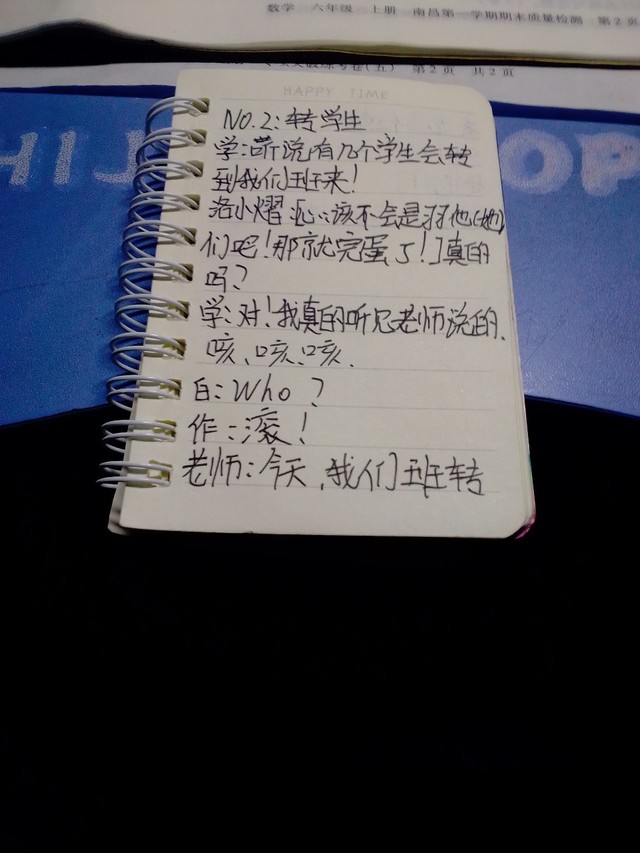 数学 六年级 上册 南昌第一学期期末质量检测 第2页
卷(五) 第2页 共2页
HAPPY TIME
NO.2:转学生
学:听说有几个学生会转
到我们班来!
洛小熠:[心:该不会是羽他(她)
们吧!那就完蛋了!]真的
吗?
学:对!我真的听见老师说的.
咳、咳、咳.
白:Who?
作:滚!
老师:今天,我们班转